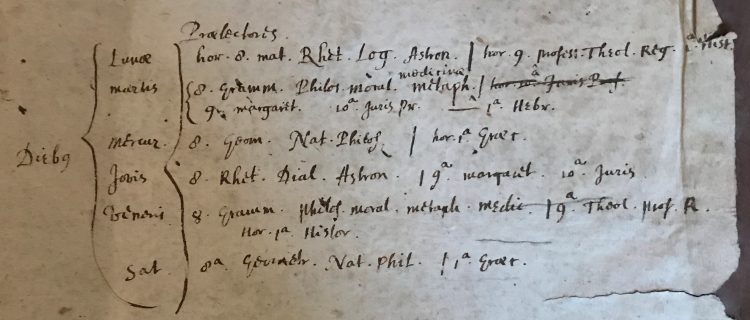 Prælectores.
Lunæ hor. 8. mat. Rhet. Log. Astron. | hor. 9. profess. Theol. Reg. 1ᵃ Hist.
medicina
martis 8. Gramm. Philos. moral. metaph. | hor. 10ᵃ Juris Prof.
9. margaret. 10ᵃ Juris Pr. — 1ᵃ Hebr.
mercur. 8. Geom. Nat. Philos. | hor. 1ᵃ Græc.
Diebꝰ
Jovis 8. Rhet. Dial. Astron. | 9ᵃ margaret. 10ᵃ Juris.
Veneris 8. Gramm. Philos. moral. metaph. medic. | 9ᵃ Theol. Prof. R.
Hor. 1ᵃ Histor.
Sat. 8ᵃ Geometr. Nat. Phil. | 1ᵃ Græc.